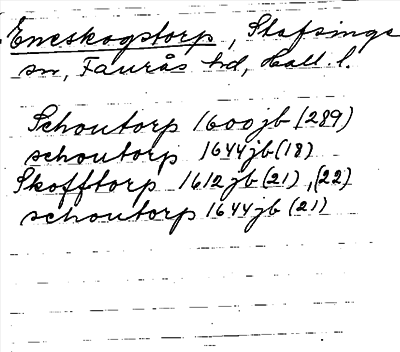 Eneskogstorp, Stafsinge
sn, Faurås hd, Hall. l.
Schoutorp 1600 jb (289)
schoutorp 1644 jb (18)
Skofftorp 1612 jb (21), (22)
schoutorp 1644 jb (21)